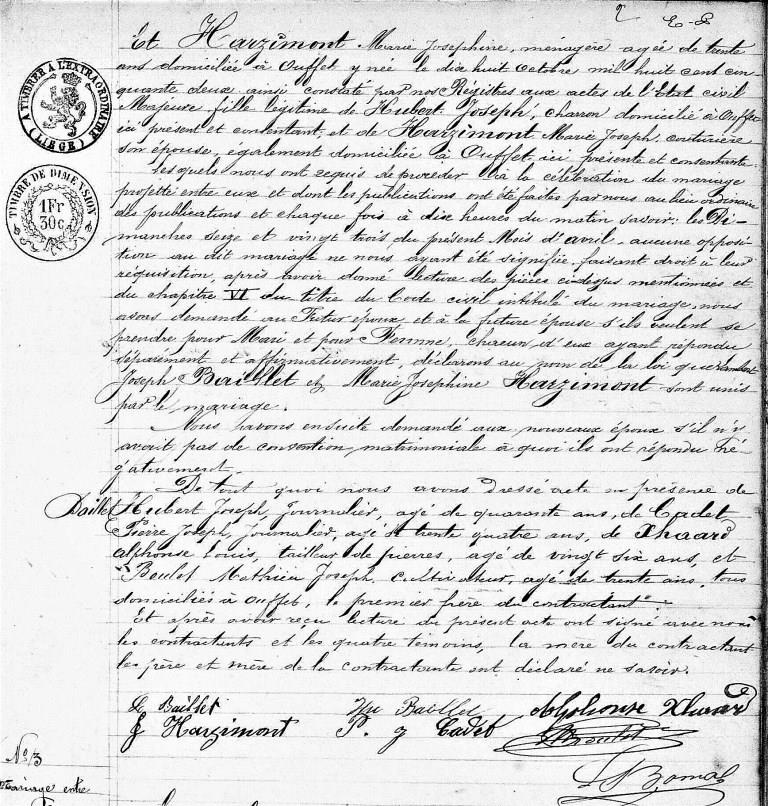 2 E-P
Et Harzimont Marie Josephine, ménagère agée de trente
ans domiciliée à Ouffet y née le dix huit octobre mil huit cent cin-
quante deux ainsi constaté par nos Régistres aux actes de l'Etat civil
Majeure fille légitime de Hubert Joseph, charron domicilié à Ouffet
ici présent et consentant, et de Harzimont Marie Joseph, couturière
son épouse, également domiciliée à Ouffet, ici présente et consentante.
Lesquels nous ont requis de procéder à la célébration du mariage
projetté entre eux et dont les publications ont été faites par nous au lieu ordinaire
des publications et chaque fois à dix heures du matin savoir: les Di-
manches seize et vingt trois du présent Mois d'avril, aucune opposi-
tion au dit mariage ne nous ayant été signifiée, faisant droit à leur
réquisition, après avoir donné lecture des pièces cidessus mentionnées et
du chapitre VI du titre du Code civil intitulé du mariage, nous
avons demandé au Futur époux et à la future épouse s'ils veulent se
prendre pour Mari et pour Femme, chacun d'eux ayant répondu
séparément et affirmativement, déclarons au nom de la loi que Lambert
Joseph Baillet et Marie Josephine Harzimont sont unis
par le mariage.
Nous avons ensuite demandé aux nouveaux époux s'il n'y
avait pas de convention matrimoniale à quoi ils ont répondu né-
gativement.
De tout quoi nous avons dressé acte en présence de
Baillet Hubert Joseph Journalier, agé de quarante ans, de Cadet
Pierre Joseph, Journalier, agé de trente quatre ans, de Xhaard
Alphonse Louis, tailleur de pierres, agé de vingt six ans, et
Boulet Mathieu Joseph, cultivateur, agé de trente ans, tous
domiciliés à Ouffet, le premier frère du contractant.
Et après avoir reçu lecture du présent acte ont signé avec nous
les contractants et les quatre temoins, la mère du contractant
les père et mère de la contractante ont déclaré ne savoir.
L Baillet Hu Baillet Alphonse Xhaard
J Harzimont P. J Cadet Boulet
Bomal
N° 13
Mariage entre
A TIMBRER A L'EXTRAORDINAIRE
(LIÉGE)
TIMBRE DE DIMENSION
1Fr
30c.